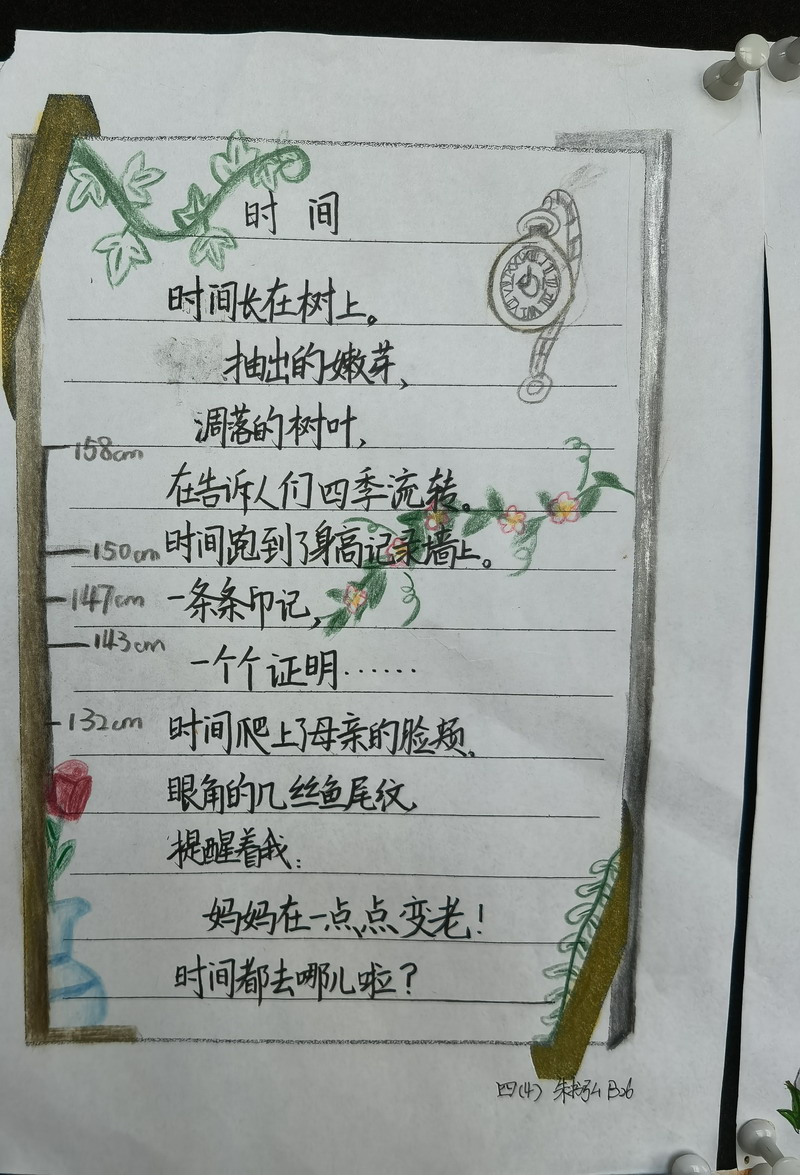 时 间
时间长在树上。
抽出的嫩芽、
凋落的树叶,
158cm
在告诉人们四季流转。
150cm
时间跑到了身高记录墙上。
147cm
一条条印记,
143cm
一个个证明……
132cm
时间爬上了母亲的脸颊、
眼角的几丝鱼尾纹,
提醒着我:
妈妈在一点点变老!
时间都去哪儿啦?
四(4) 朱 弘 B26